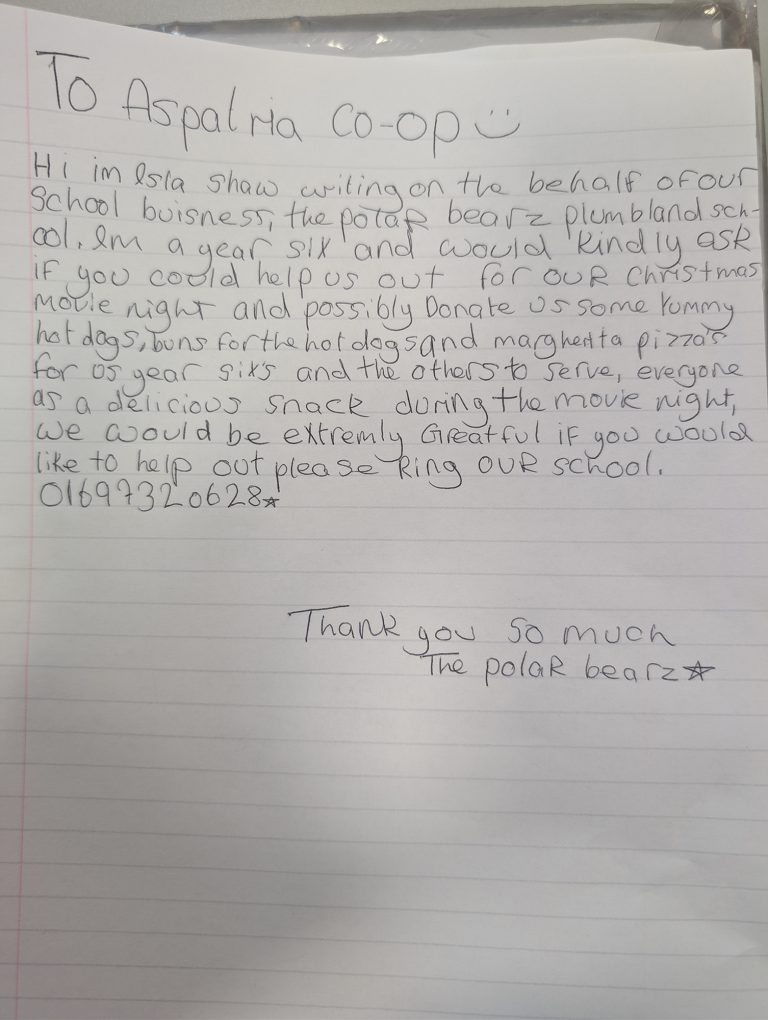 To Aspatria co-op :)
Hi im Isla Shaw writing on the behalf of our
School buisness, the polar bearz plumbland sch-
ool. Im a year six and would kindly ask
if you could help us out for our christmas
movie night and possibly Donate us some yummy
hot dogs, buns for the hot dogs and margherita pizza's
for us year six's and the others to serve, everyone
as a delicious snack during the movie night,
we would be extremly Greatful if you would
like to help out please Ring our school.
01697320628☆
Thank you so much
The polar bearz☆